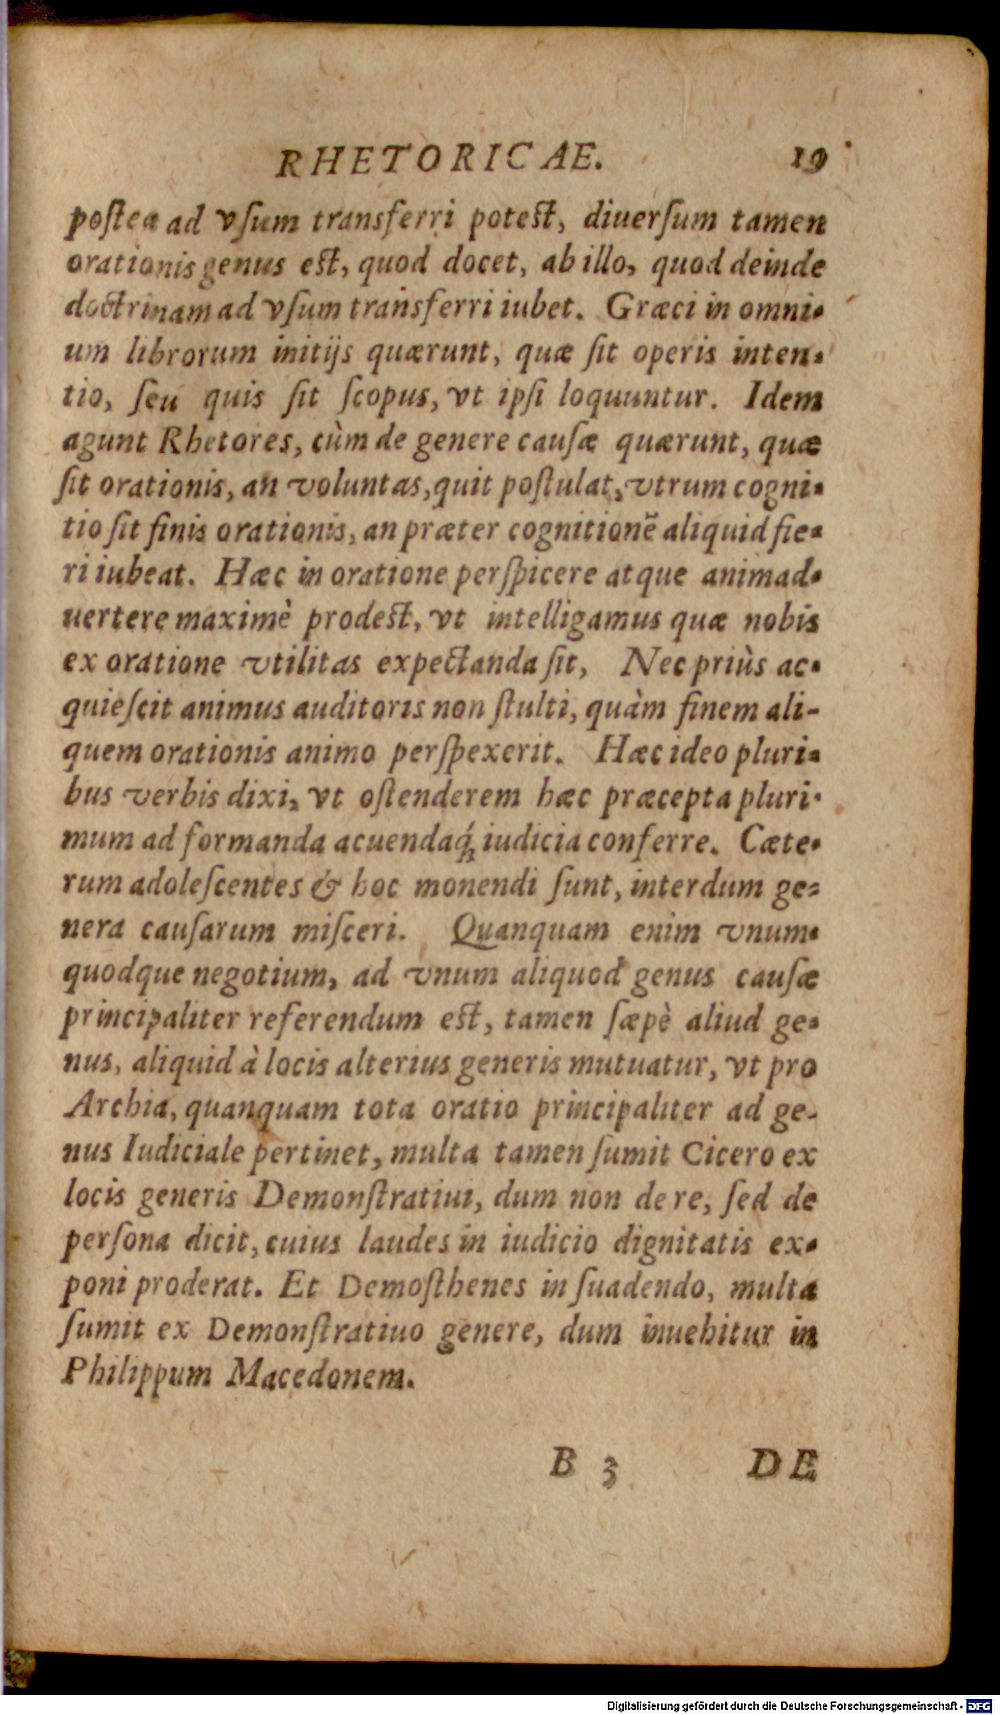 RHETORICAE. 19
postea ad vſum transferri poteſt, diuerſum tamen
orationis genus eſt, quod docet, ab illo, quod deinde
doctrinam ad vſum transferri iubet. Græci in omni-
um librorum initijs quærunt, quæ ſit operis inten-
tio, ſeu quis ſit ſcopus, vt ipſi loquuntur. Idem
agunt Rhetores, cùm de genere cauſæ quærunt, quæ
ſit orationis, an voluntas, quit poſtulat, vtrum cogni-
tio ſit finis orationis, an præter cognitionẽ aliquid fie-
ri iubeat. Hæc in oratione perſpicere atque animad-
uertere maximè prodeſt, vt intelligamus quæ nobis
ex oratione vtilitas expectanda ſit, Nec priùs ac-
quieſcit animus auditoris non ſtulti, quàm finem ali-
quem orationis animo perſpexerit. Hæc ideo pluri-
bus verbis dixi, vt oſtenderem hæc præcepta pluri-
mum ad formanda acuendaq́; iudicia conferre. Cæte-
rum adoleſcentes & hoc monendi ſunt, interdum ge-
nera cauſarum miſceri. Quanquam enim vnum-
quodque negotium, ad vnum aliquod genus cauſæ
principaliter referendum eſt, tamen ſæpè aliud ge-
nus, aliquid à locis alterius generis mutuatur, vt pro
Archia, quanquam tota oratio principaliter ad ge-
nus Iudiciale pertinet, multa tamen ſumit Cicero ex
locis generis Demonſtratiui, dum non de re, ſed de
perſona dicit, cuius laudes in iudicio dignitatis ex-
poni proderat. Et Demoſthenes in ſuadendo, multa
ſumit ex Demonſtratiuo genere, dum inuehitur in
Philippum Macedonem.
B 3 DE
Digitalisierung gefördert durch die Deutsche Forschungsgemeinschaft - DFG